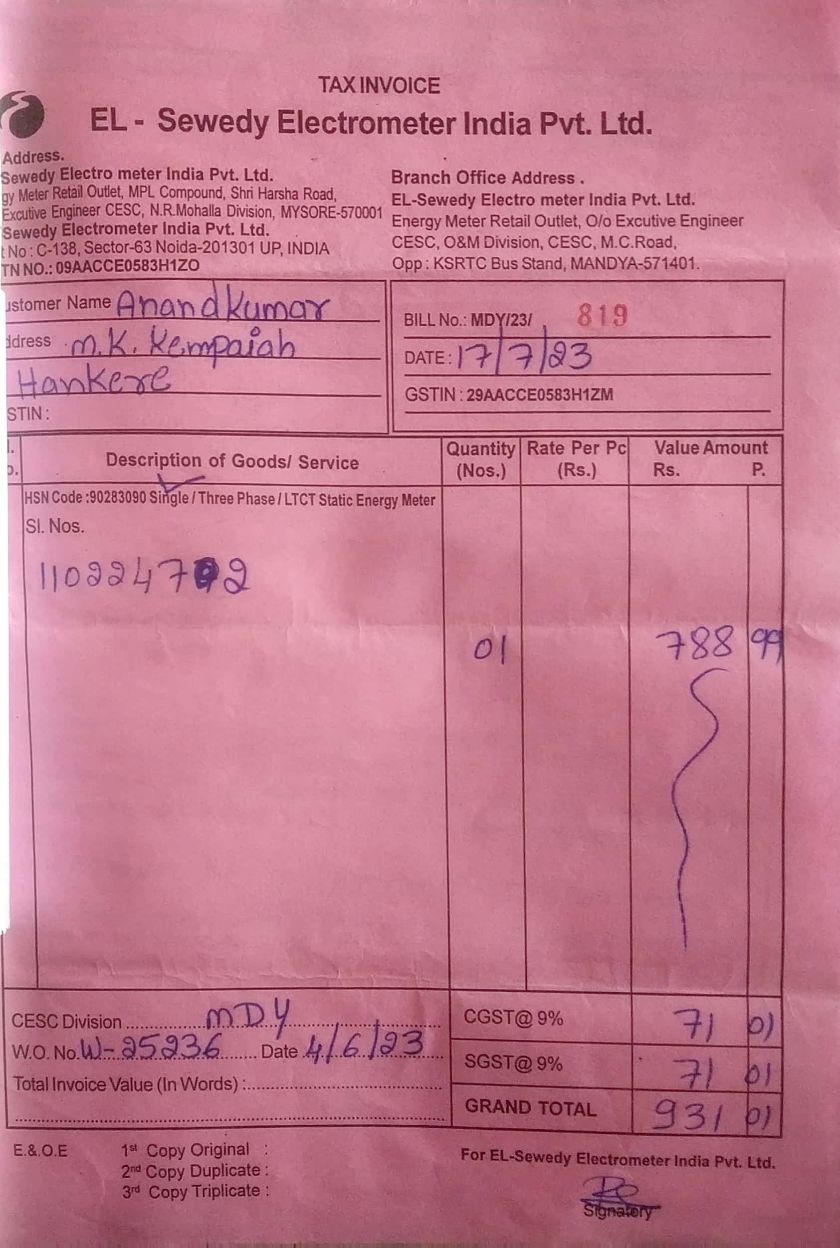 TAX INVOICE
EL - Sewedy Electrometer India Pvt. Ltd.
Address.
Sewedy Electro meter India Pvt. Ltd.
gy Meter Retail Outlet, MPL Compound, Shri Harsha Road,
Excutive Engineer CESC, N.R.Mohalla Division, MYSORE-570001
Sewedy Electrometer India Pvt. Ltd.
t No : C-138, Sector-63 Noida-201301 UP, INDIA
TN NO.: 09AACCE0583H1ZO
Branch Office Address .
EL-Sewedy Electro meter India Pvt. Ltd.
Energy Meter Retail Outlet, O/o Excutive Engineer
CESC, O&M Division, CESC, M.C.Road,
Opp : KSRTC Bus Stand, MANDYA-571401.
ustomer Name Anandkumar
ddress M.K. Kempaiah
Hankere
STIN :
BILL No.: MDY/23/ 819
DATE : 17/7/23
GSTIN : 29AACCE0583H1ZM
Description of Goods/ Service
Quantity (Nos.)
Rate Per Pc (Rs.)
Value Amount
Rs. P.
HSN Code :90283090 Single / Three Phase / LTCT Static Energy Meter
Sl. Nos.
01 788 99
CESC Division MDY
W.O. No. W-25236 Date 4/6/23
Total Invoice Value (In Words) :
CGST@ 9% 71 01
SGST@ 9% 71 01
GRAND TOTAL 931 01
E.&.O.E
1st Copy Original :
2nd Copy Duplicate :
3rd Copy Triplicate :
For EL-Sewedy Electrometer India Pvt. Ltd.
Signatory